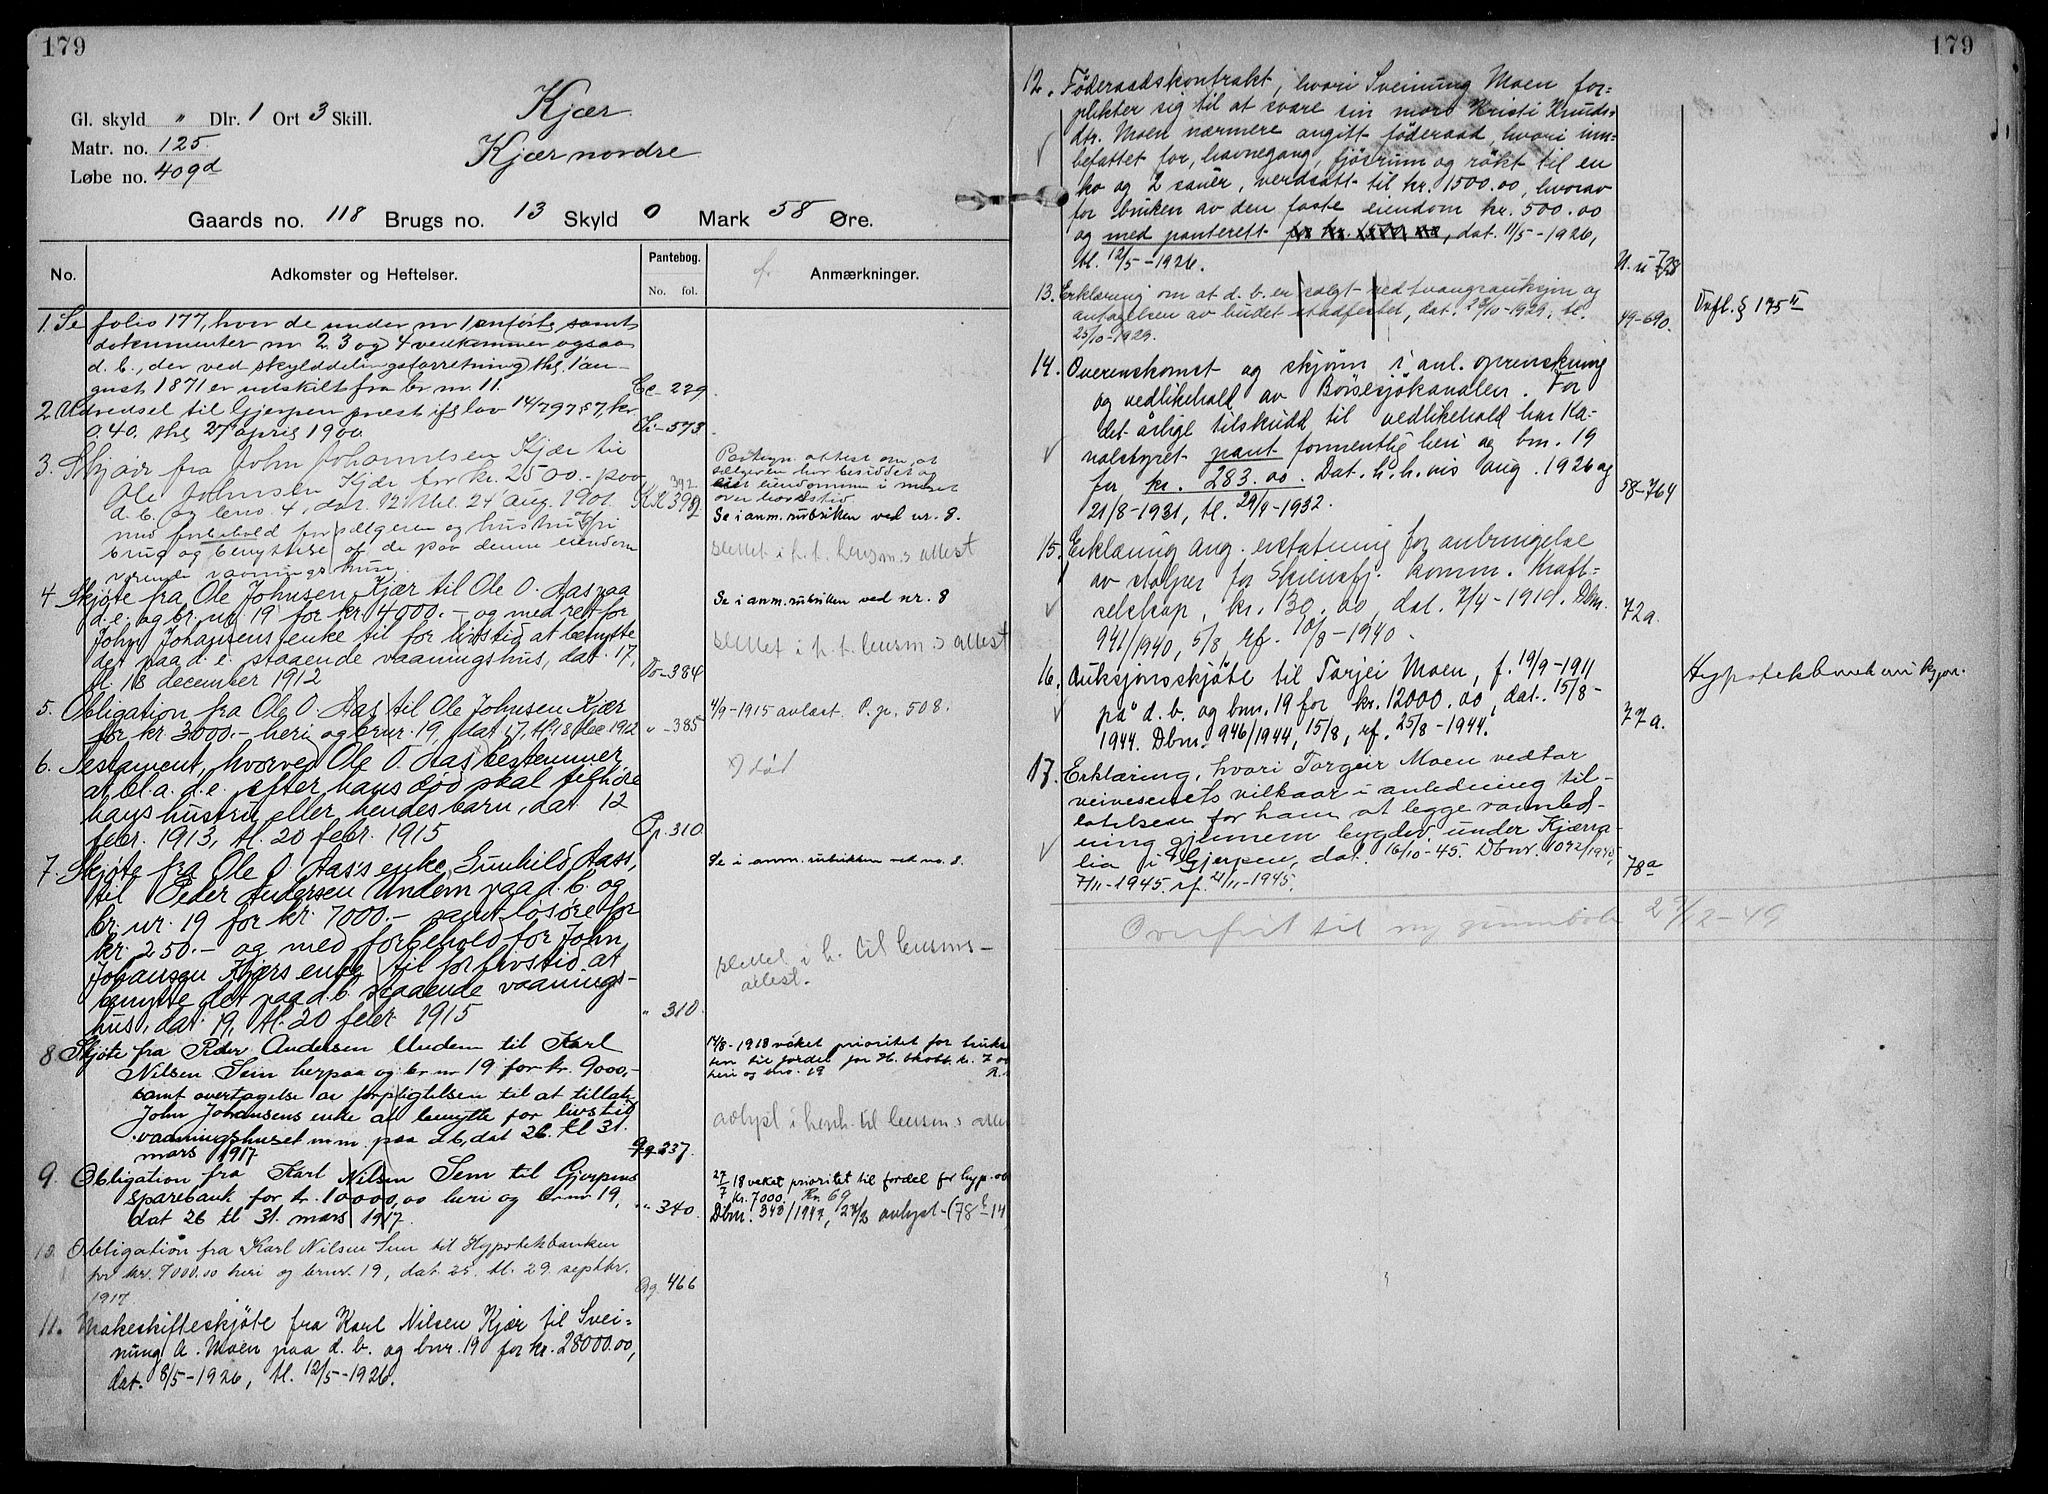 179
Kjær
Kjær nordre
Gl. skyld " Dlr. 1 Ort 3 Skill.
Matr. no. 125.
Løbe no. 409d
Gaards no. 118 Brugs no. 13 Skyld 0 Mark 58 Øre.
No.
Adkomster og Heftelser.
Pantebog.
No. fol.
Anmærkninger.
1. Se folio 177, hvor de under nr 1 anførte, samt
dokumenter nr 2, 3 og 4 vedkommer ogsaa
d. b., der ved skylddelingsforretning thl. 1 au-
gust 1871 er udskilt fra br. nr. 11.
Cc - 229
2. Udredsel til Gjerpen prest ifølge lov 14/7 97 § 7, kr.
0.40. thl 27 april 1900
573
3. Skjøte fra John Johannesen Kjær til
Ole Johnsen Kjær for kr. 2500.- paa
d. b. og brno. 4, dat. 12 thl. 24 aug. 1901
med forbehold for sælgeren og hustru af fri
brug og benyttelse af de paa denne eiendom
værende vaaningshuse.
392
attest om, at
sælgeren har besiddet
eiendommen i
over hævdstid
Se i anm. rubrikken ved nr. 8.
slettet i h. t. lensm.s attest
4. Skjøte fra Ole Johnsen Kjær til Ole O. Aas paa
d. e. og br. nr 19 for kr. 4000.- og med ret for
John Johansens enke til for livstid at benytte
det paa d. e. staaende vaaningshus, dat. 17,
tl. 18 december 1912
384
Se i anm. rubrikken ved nr. 8
slettet i h. t. lensm.s attest
5. Obligation fra Ole O. Aas til Ole Johnsen Kjær
for kr 3000.- heri og br.nr. 19, dat 17, tl. 18 dec 1912
" - 385
4/9-1915 avlæst P. p. 508.
6. Testament, hvorved Ole O. Aas bestemmer,
at bl. a. d. e. efter hans død skal tilhøre
hans hustru eller hendes barn, dat 12
febr. 1913, tl. 20 febr. 1915
Pp. 310
død
7. Skjøte fra Ole O. Aas's enke, Gunhild Aas,
til Peder Andersen Undem paa d. b. og
br. nr. 19 for kr. 7000.- samt løsøre for
kr. 250.- og med forbehold for John
Johansen Kjærs enke til for livstid at
benytte det paa d. b. staaende vaanings-
hus, dat. 19, tl. 20 febr 1915
" 310
Se i anm. rubrikken ved no. 8.
slettet i h. til lensms-
attest.
8. Skjøte fra Peder Andersen Undem til Karl
Nilsen Sem herpaa og br nr 19 for kr. 9000.-
samt overtagelse av forpligtelsen til at tillate
John Johansens enke at benytte for livstid
vaaningshuset m.m. paa d b, dat 26. tl 31.
mars 1917
Qq 237.
14/8-1918 veket prioritet for bruks
ten til fordel for H.
heri og bno. 19
avlyst i henh. til lensm.s
9. Obligation fra Karl Nilsen Sem til Gjerpens
sparebank for kr. 10000,00 heri og brnr 19,
dat 26 tl 31. mars 1917.
" 340.
27/7 18 veket prioritet til fordel for hyp.
kr. 7000. Rr. 69
Dbnr. 340/1947, 27/2 avlyst
10. Obligation fra Karl Nilsen Sem til Hypotekbanken
for kr. 7000.00 heri og brnr. 19, dat. 25. tl. 29. septbr.
1917
Qq. 466
11. Makeskifteskjøte fra Karl Nilsen Kjær til Svei=
nung A. Moen paa d. b. og bnr. 19 for kr. 28000.00,
dat. 8/5-1926, tl. 12/5-1926.
179
12. Føderaadskontrakt, hvori Sveinung Moen for=
plikter sig til at svare sin mor Kristi Knuds=
dtr. Moen nærmere angitt føderaad, hvori inn=
befattet for, havnegang, fjøsrum og røkt til en
ko og 2 sauer, verdsatt til kr. 1500.00, hvorav
for bruken av den faste eiendom kr. 500.00
og med panterett for kr. 1500,00, dat. 11/5-1926,
tl. 12/5-1926.
728
13. Erklæring om at d. b. er solgt ved tvangsauksjon og
antagelsen av budet stadfestet, dat. 23/10-1929, tl.
25/10-1929.
49-690.
Tvfl. § 175 II
14. Overenskomst og skjønn i anl. oprenskning
og vedlikehold av Børsesjøkanalen. For
det årlige tilskudd til vedlikehold har Ka-
nalstyret pant formentlig heri og bnr. 19
for kr. 283.00. Dat. h.h.vis aug. 1926 og
21/8-1931, tl. 29/4-1932.
58-764
15. Erklæring ang. erstatning for anbringelse
av stolper for Skiensfj. komm. Kraft-
selskap, kr. 130.00, dat. 7/4-1919. Dbnr.
941/1940, 5/8, rf. 10/8-1940.
72a.
16. Auksjonsskjøte til Tarjei Moen, f. 19/9-1911
på d. b. og bnr. 19 for kr. 12000.00, dat. 15/8-
1944. Dbnr. 946/1944, 15/8, rf. 25/8-1944.
77a.
17. Erklæring, hvori Torgeir Moen vedtar
veivesenets vilkaar i anledning til-
latelsen for ham at legge vannled-
ning gjennem bygdev. under Kjærra-
lia i Gjerpen, dat. 16/10-45. Dbnr. 1092/1945,
7/11-1945. rf. 21/11-1945.
78a
Overført til ny grunnbok 29/12-49